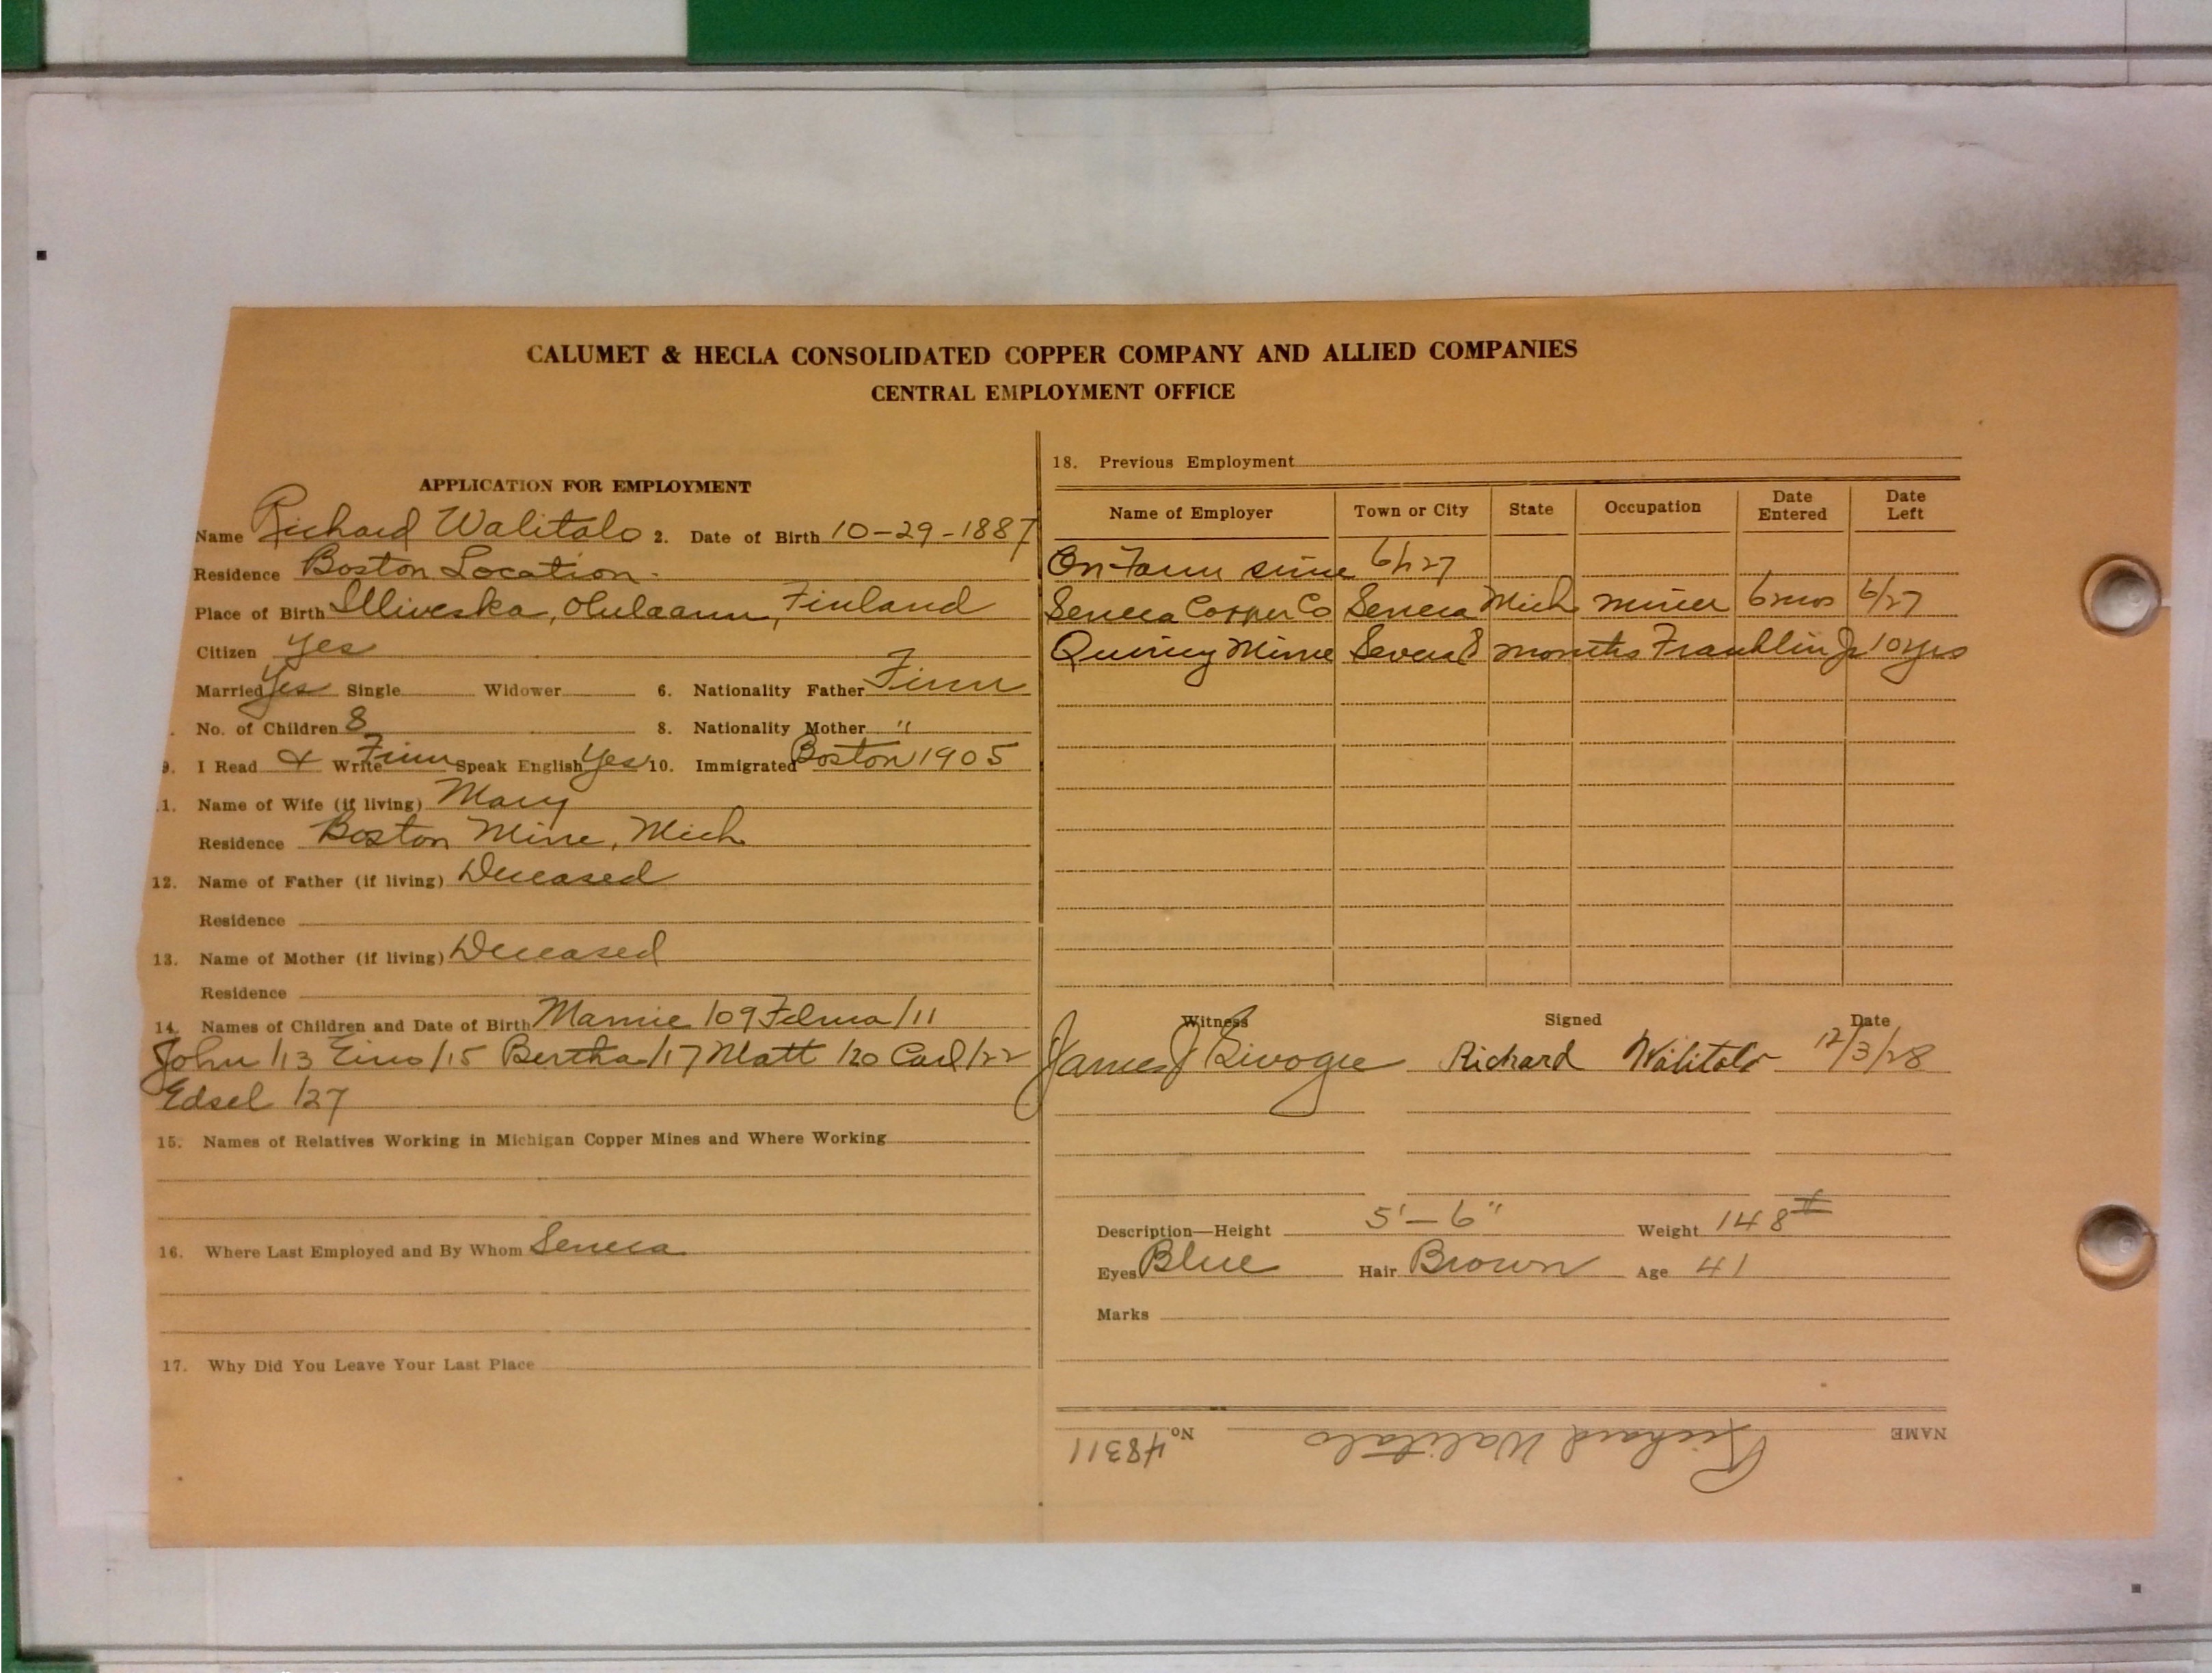 CALUMET & HECLA CONSOLIDATED COPPER COMPANY AND ALLIED COMPANIES
CENTRAL EMPLOYMENT OFFICE
APPLICATION FOR EMPLOYMENT
Name Richard Walitalo 2. Date of Birth 10-29-1887
Residence Boston Location
Place of Birth Finland
Citizen Yes
Married Yes Single Widower 6. Nationality Father Finn
. No. of Children 8 8. Nationality Mother "
9. I Read & Write Finn Speak English Yes 10. Immigrated Boston 1905
1. Name of Wife (if living) Mary
Residence Boston Mine, Mich
12. Name of Father (if living) Deceased
Residence
13. Name of Mother (if living) Deceased
Residence
14. Names of Children and Date of Birth Mamie /09 /11
John /13 Eino /15 Bertha /17 Matt /20 Carl /22
Edsel /27
15. Names of Relatives Working in Michigan Copper Mines and Where Working
16. Where Last Employed and By Whom Seneca
17. Why Did You Leave Your Last Place
18. Previous Employment
Name of Employer Town or City State Occupation Date Entered Date Left
On Farm since 6/27
Seneca Copper Co Seneca Mich miner 6 mos 6/27
Quincy Mine Several months Franklin Jr 10 yrs
Witness Signed Date
James Richard Walitalo 12/3/28
Description—Height 5'-6" Weight 148#
Eyes Blue Hair Brown Age 41
Marks
NAME Richard Walitalo No. 48311